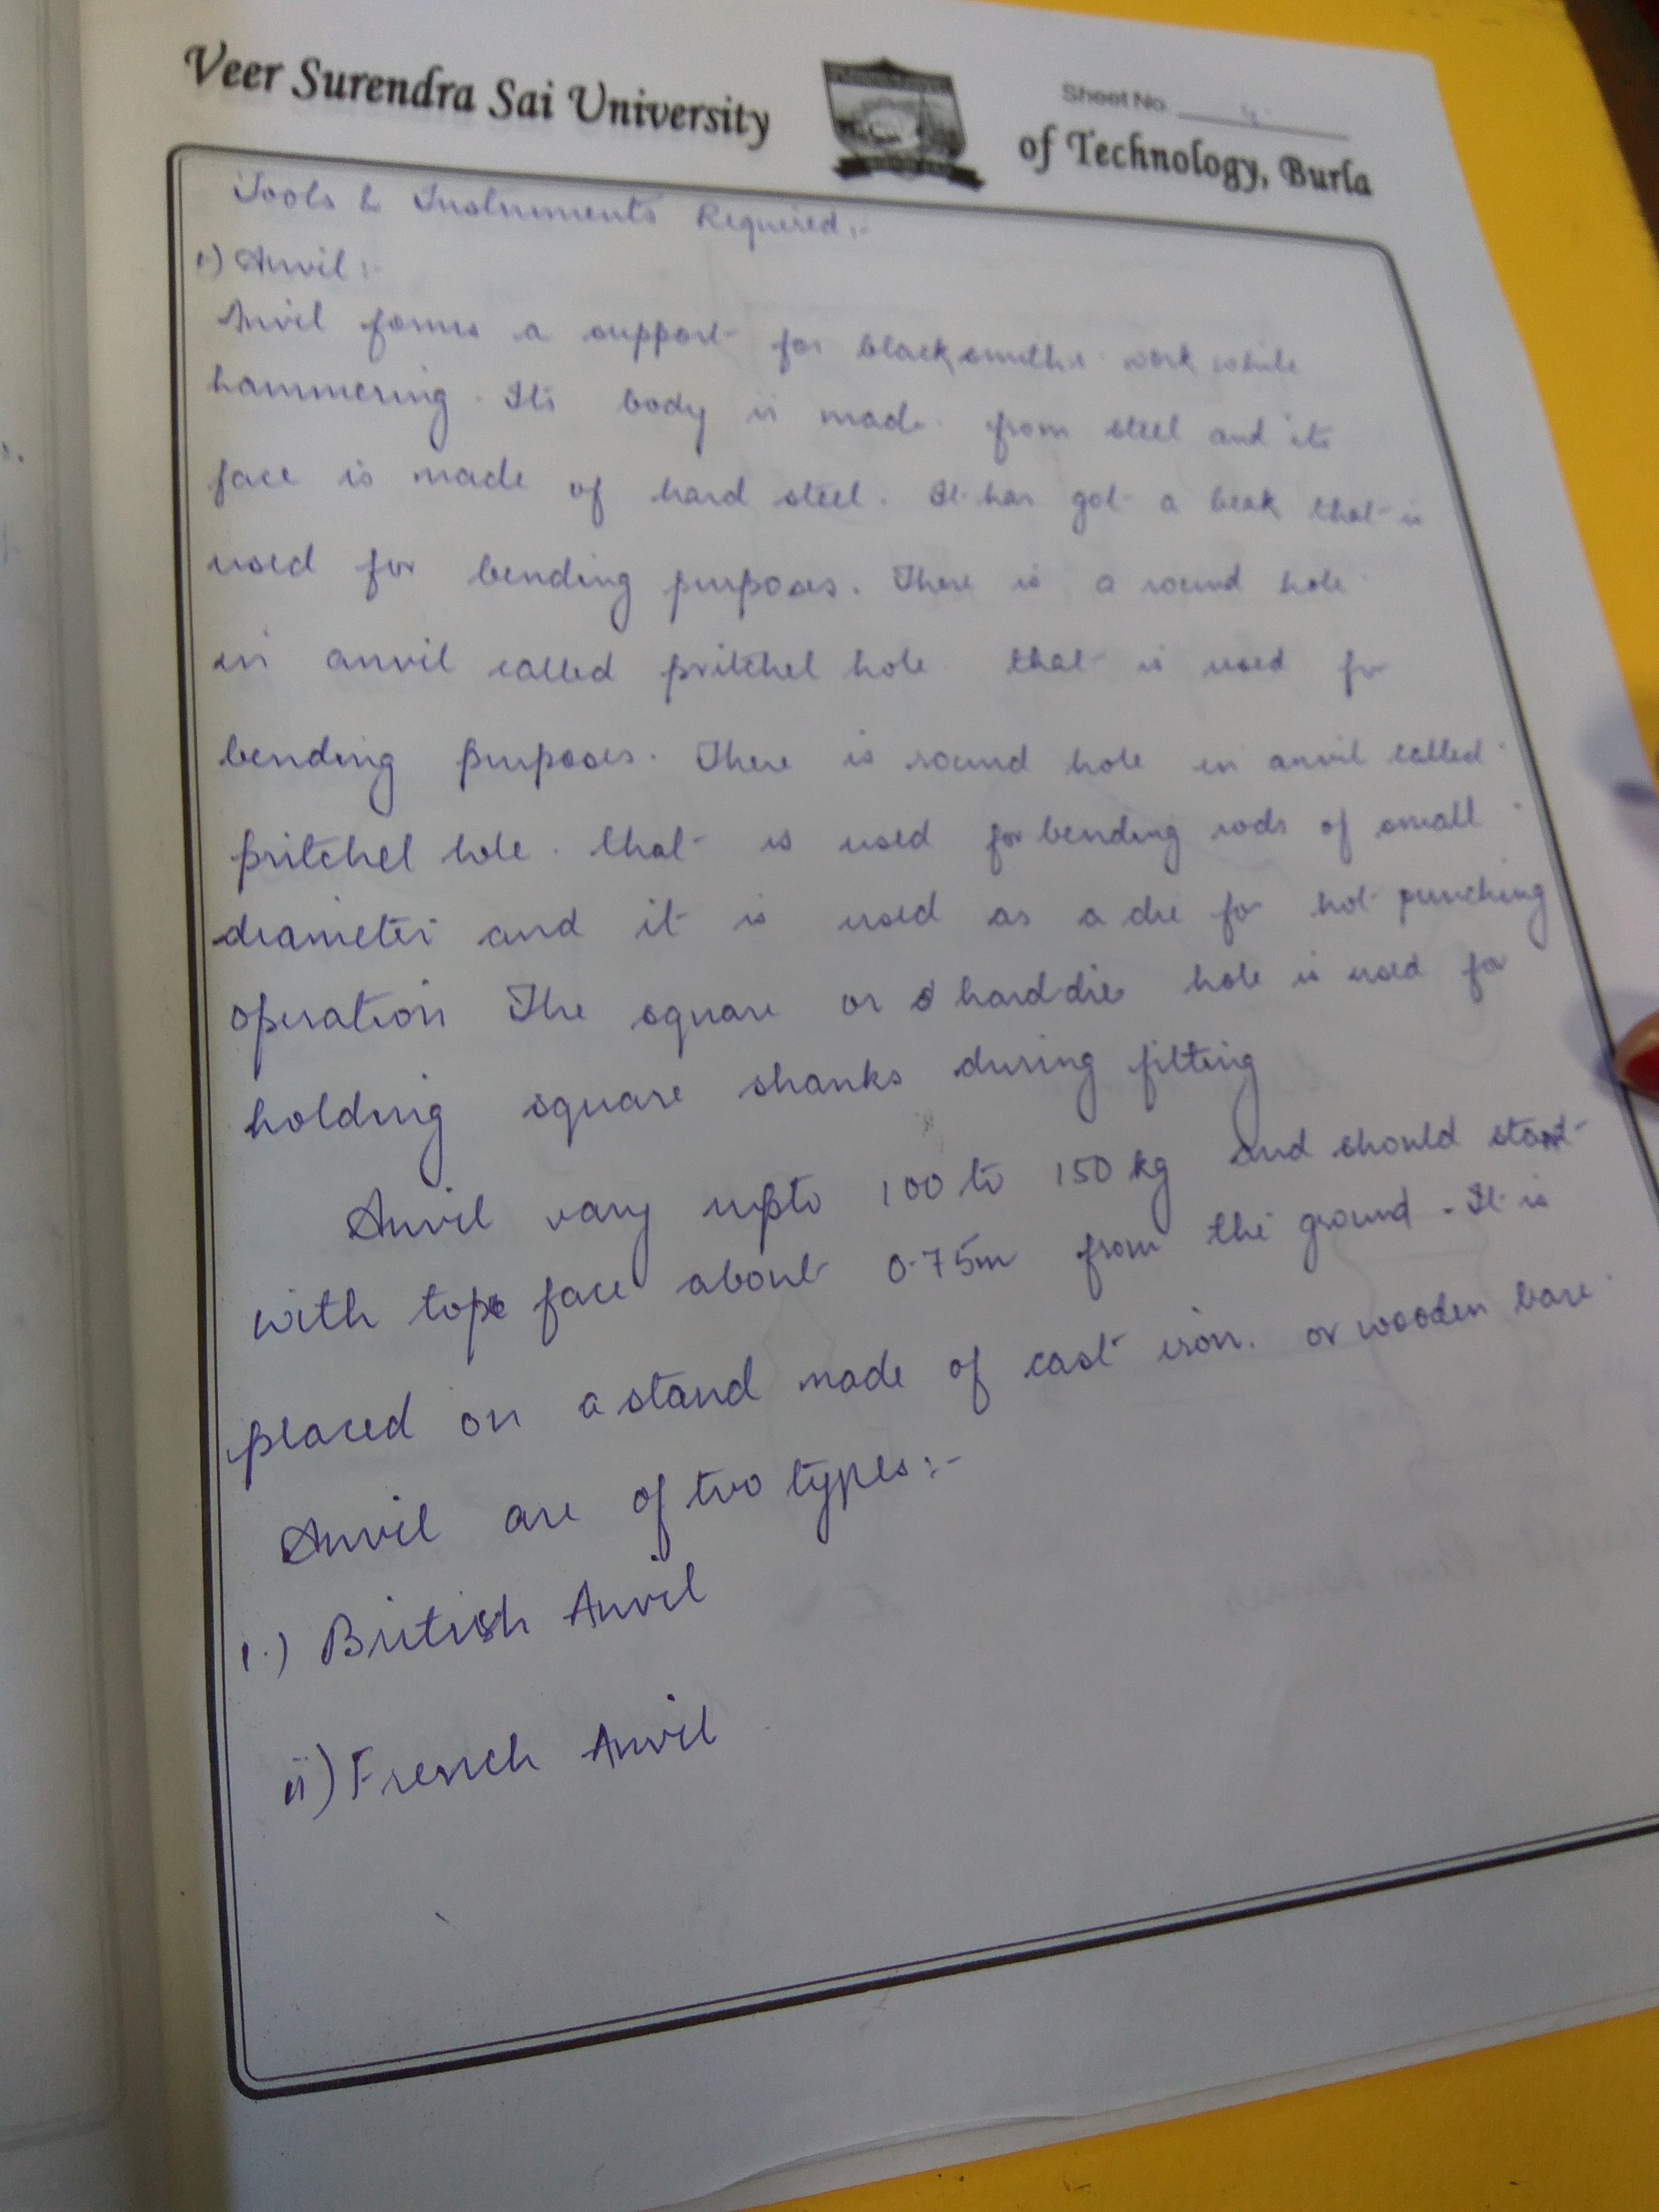 Veer Surendra Sai University of Technology, Burla
Sheet No. 4
Tools & Instruments Required:-
1.) Anvil:-
Anvil forms a support for blacksmiths work while
hammering. Its body is made from steel and its
face is made of hard steel. It has got a beak that is
used for bending purposes. There is a round hole
in anvil called pritchel hole that is used for
bending purposes. There is round hole in anvil called
pritchel hole. that is used for bending rods of small
diameter and it is used as a die for hot punching
operation The square or harddie hole is used for
holding square shanks during fitting
Anvil vary upto 100 to 150 kg and should
with top face about 0.75m from the ground. It is
placed on a stand made of cast iron. or wooden base
Anvil are of two types:-
1.) British Anvil
ii) French Anvil